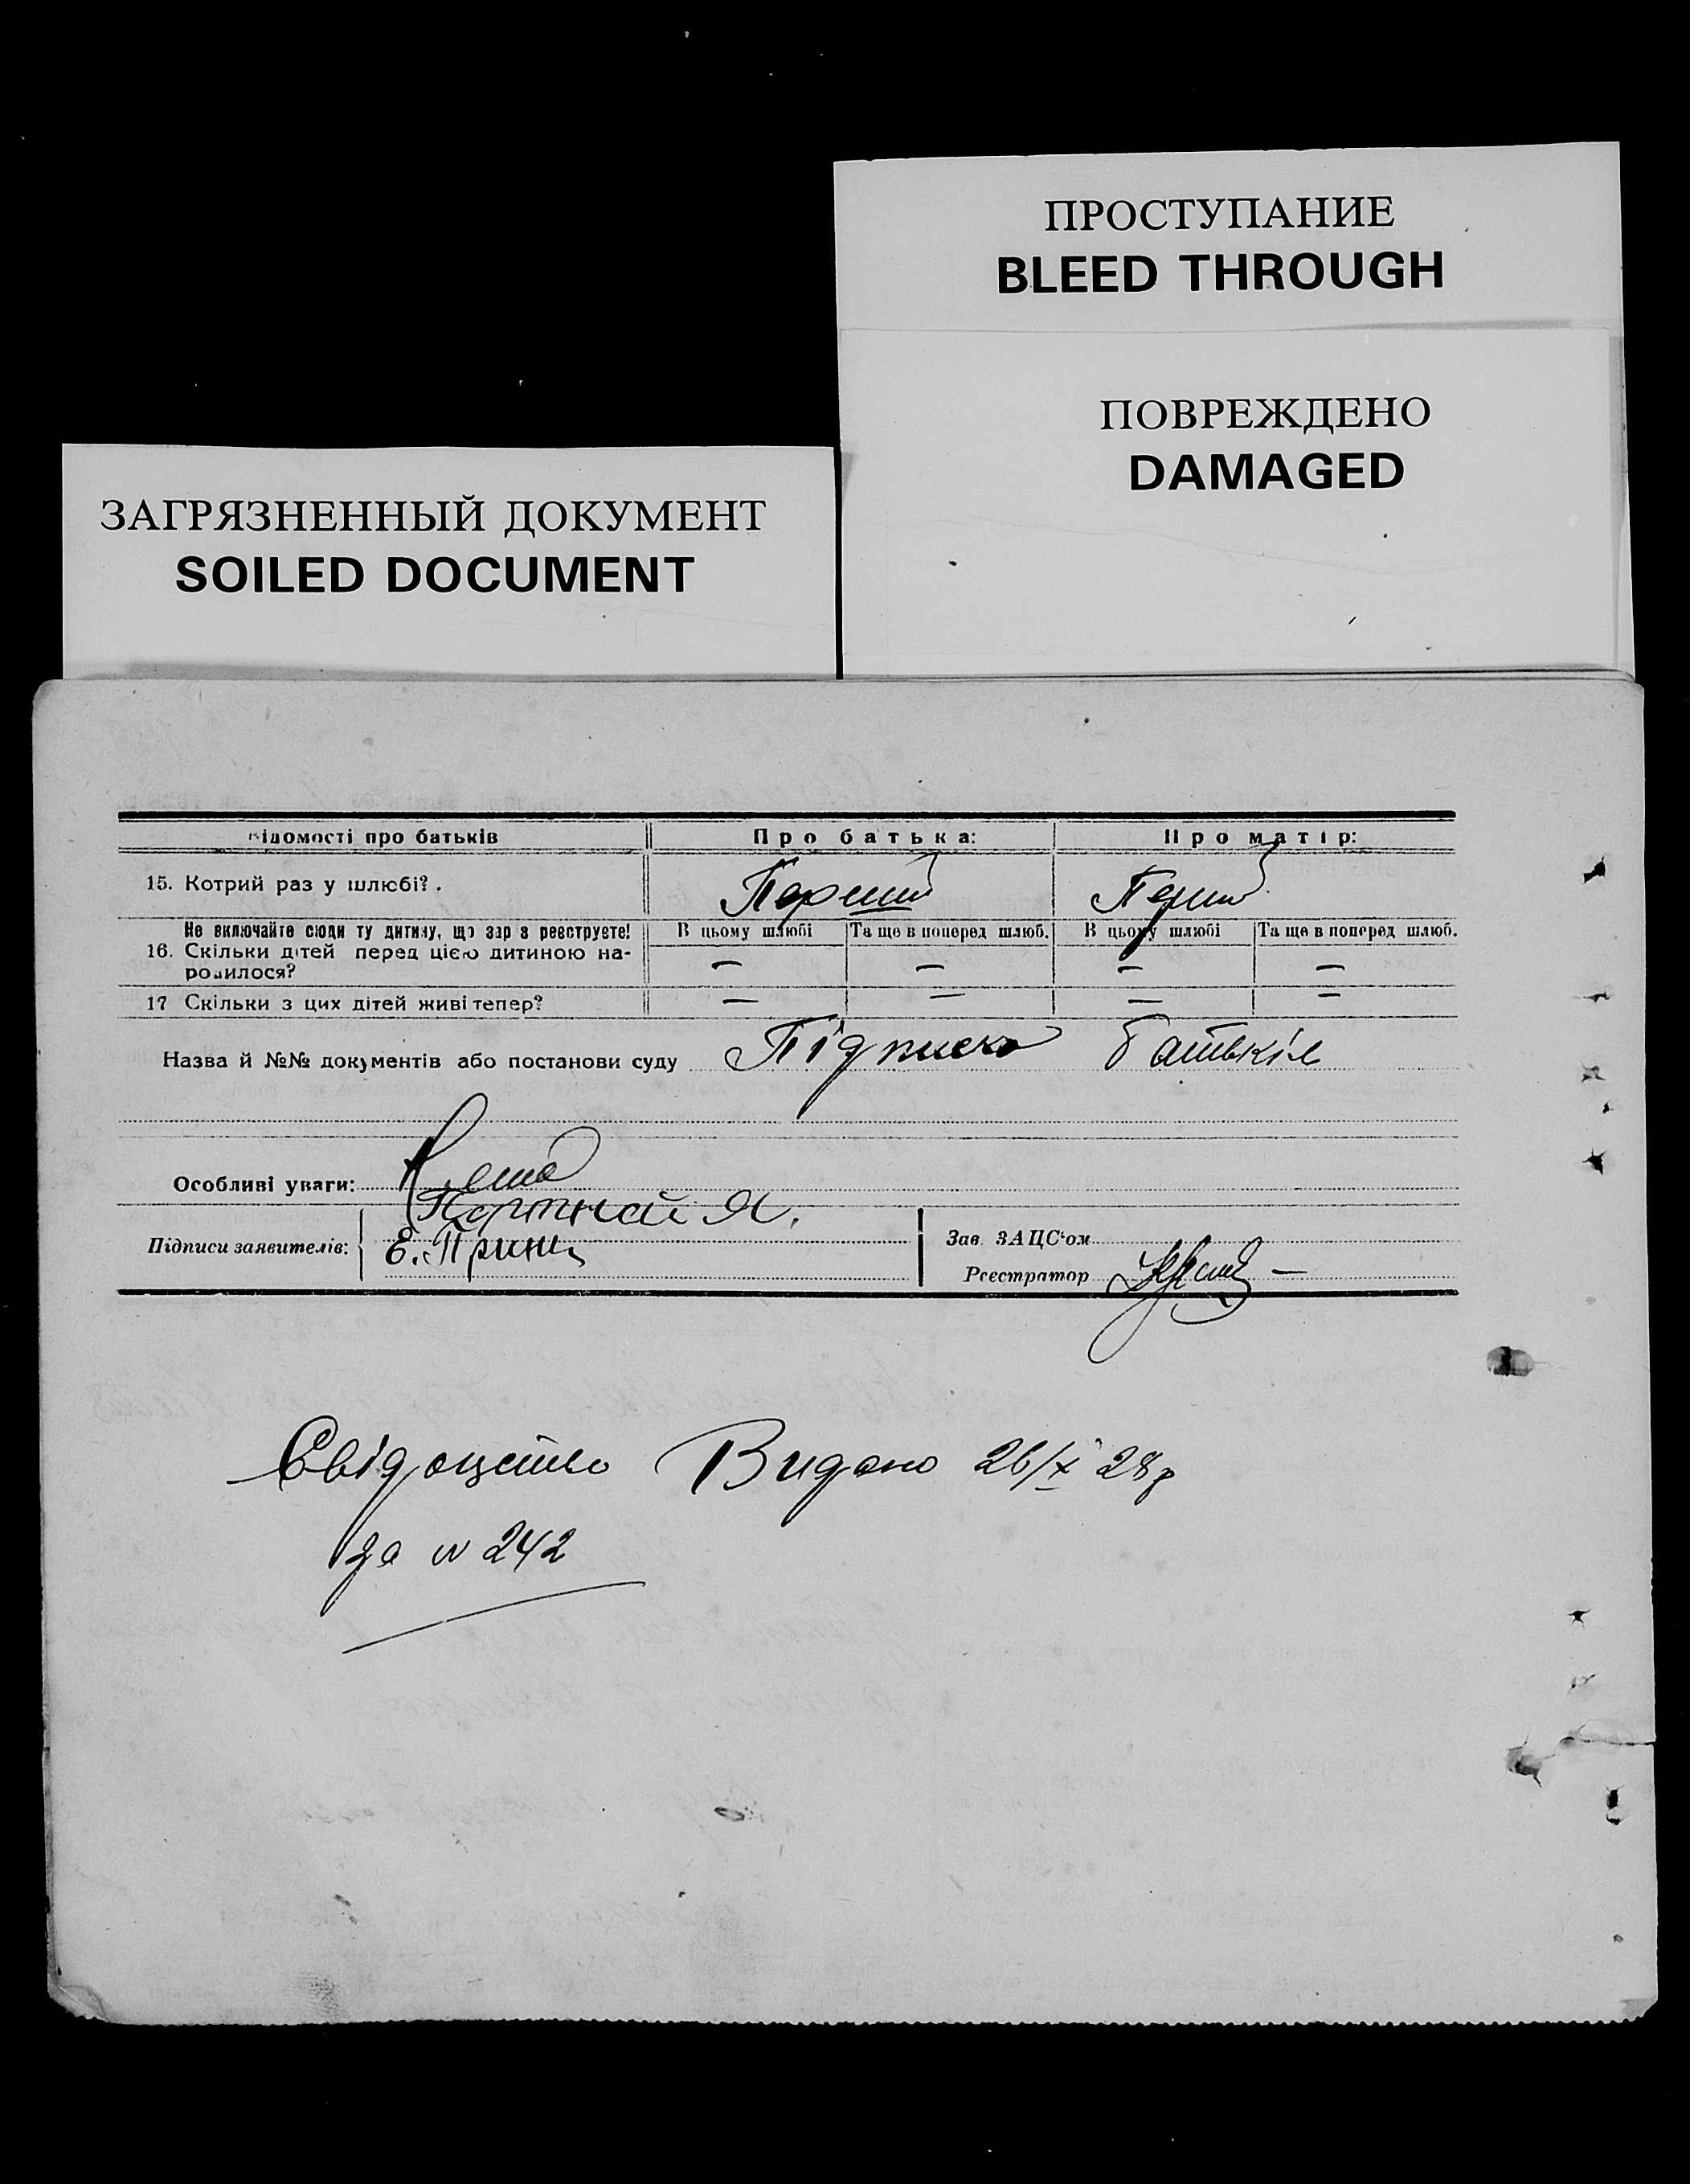 ПРОСТУПАНИЕ
BLEED THROUGH
ПОВРЕЖДЕНО
DAMAGED
ЗАГРЯЗНЕННЫЙ ДОКУМЕНТ
SOILED DOCUMENT
Відомості про батьків Про батька: Про матір:
15. Котрий раз у шлюбі? . Перший Перший
Не включайте сюди ту дитину, що зараз реєструєте! В цьому шлюбі Та ще в поперед шлюб. В цьому шлюбі Та ще в поперед шлюб.
16. Скільки дітей перед цією дитиною на- — — — —
родилося?
17 Скільки з цих дітей живі тепер? — — — —
Назва й №№ документів або постанови суду Підписка батьків
Особливі уваги:
Портной Я.
Підписи заявителів: Е. Принц Зав. ЗАЦС‘ом
Реєстратор
Свідоцтво Видано 26/X 28р
за N 242